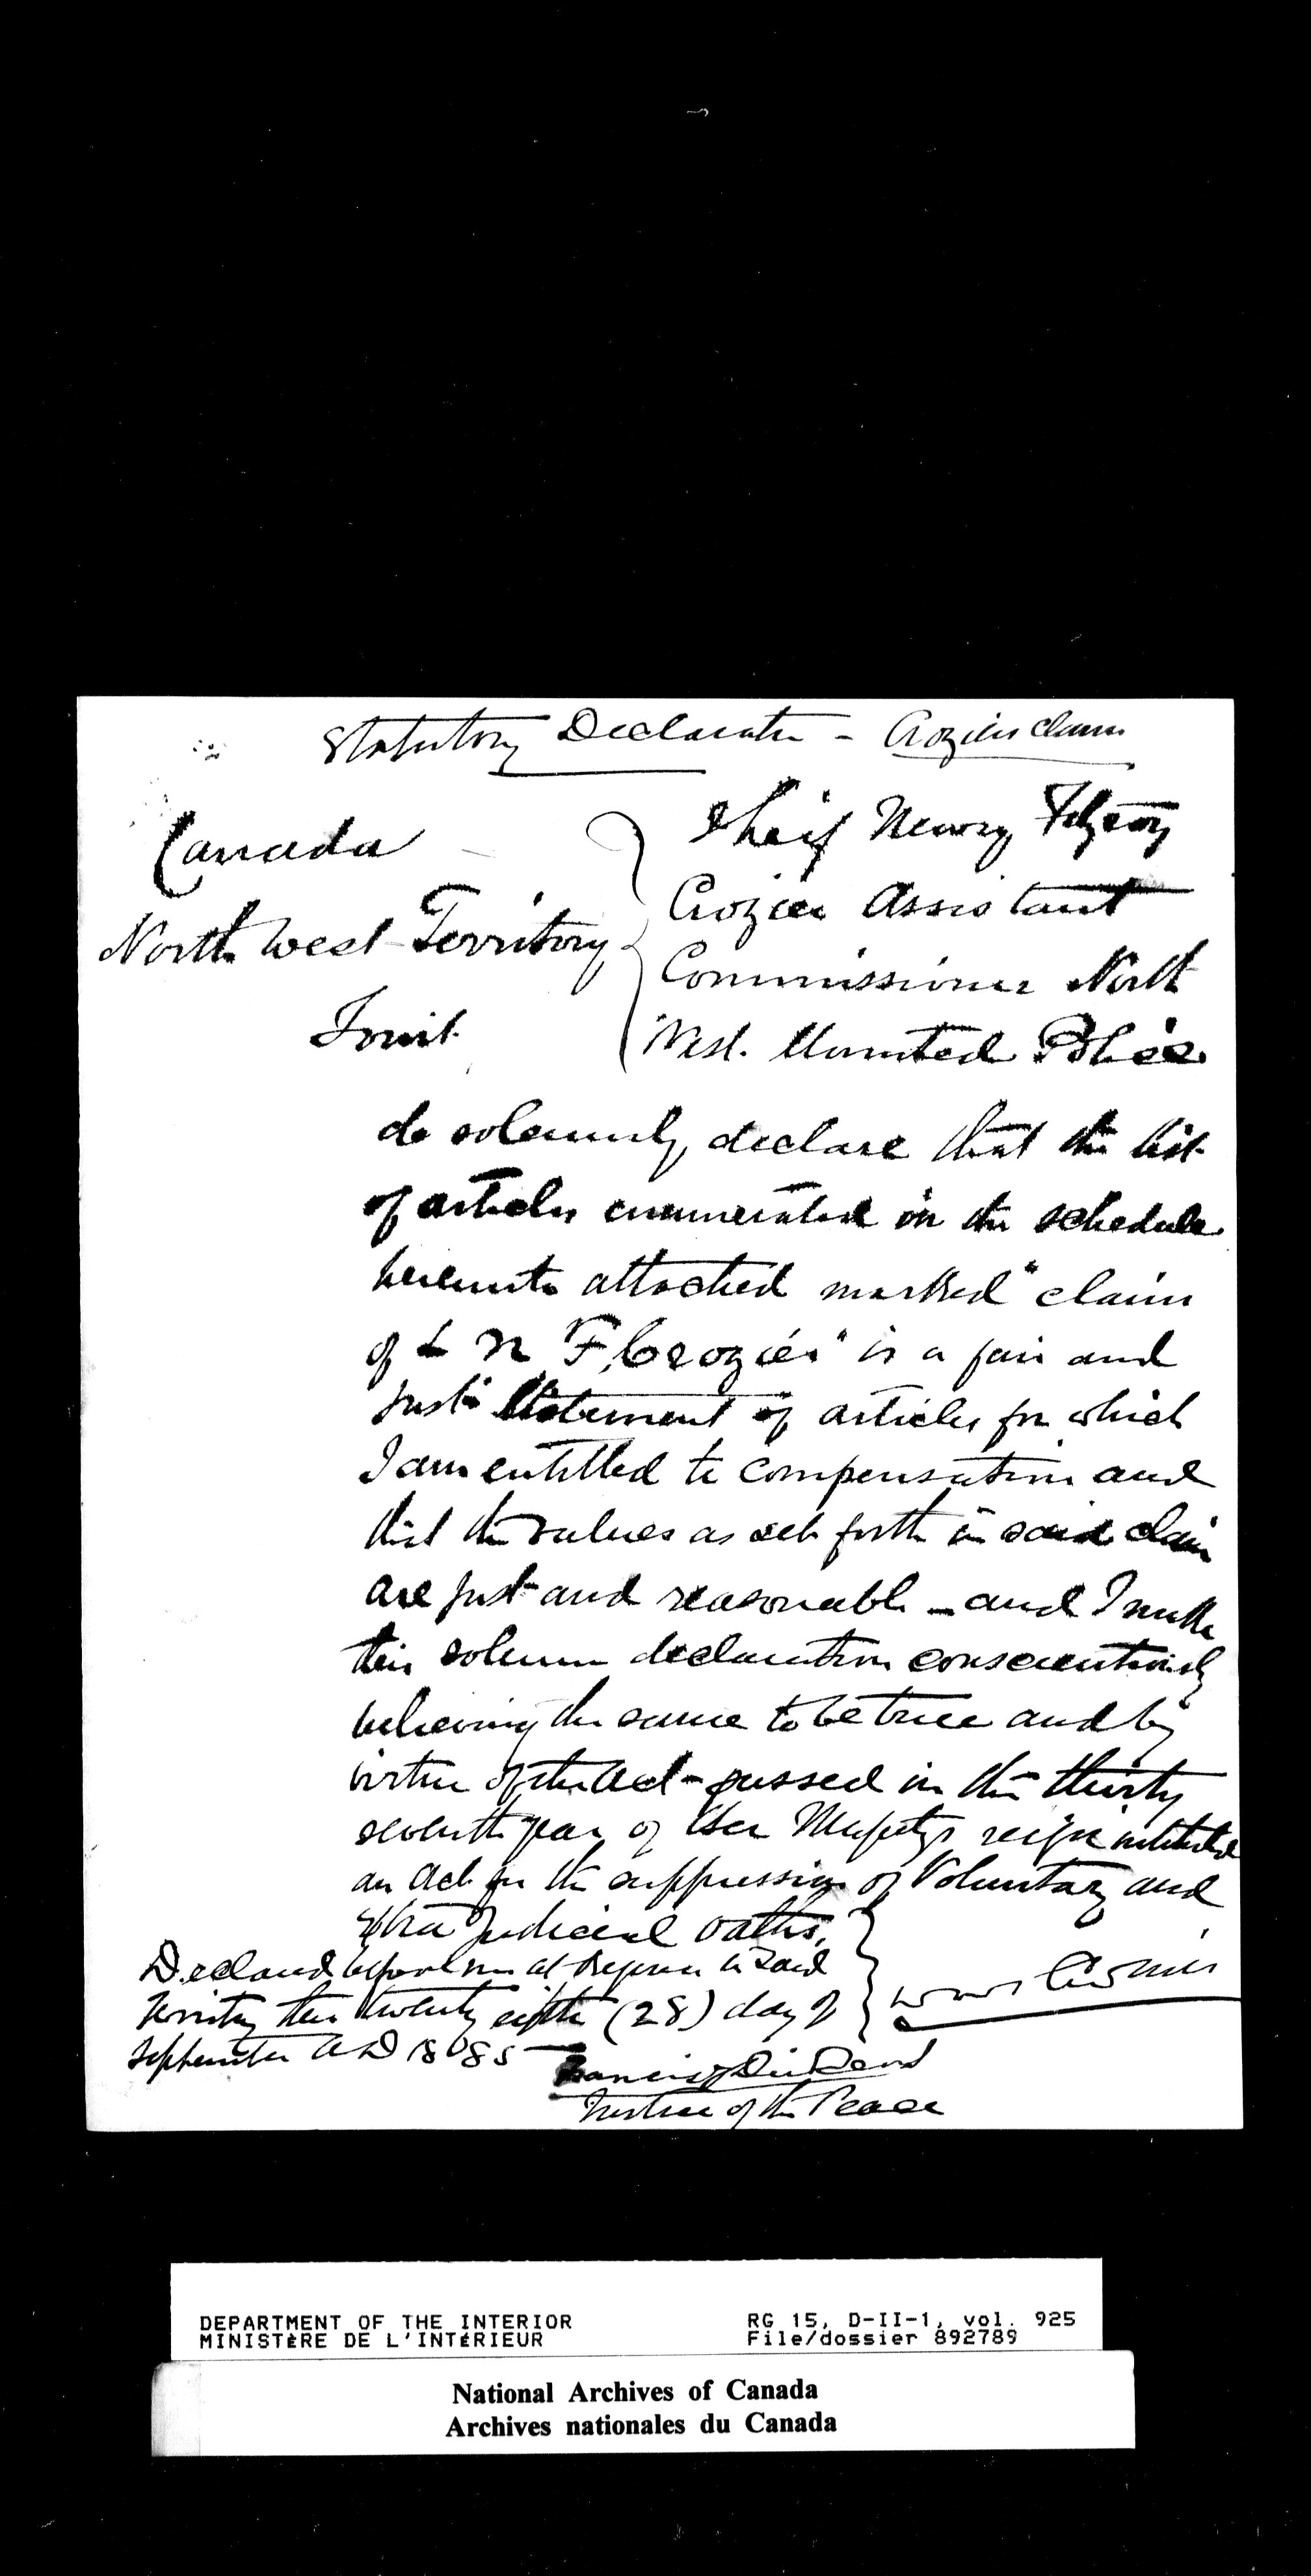 Statutory Declaration - Croziers claim
Canada
North West Territory
To wit
I Leif Newry Fitzroy
Crozier Assistant
Commissioner North
West Mounted Police
do solemnly declare that the list
of articles enumerated in the schedule
hereunto attached marked "claim
of L N F Crozier" is a fair and
just statement of articles for which
I am entitled to compensation and
that the values as set forth in said claim
are just and reasonable - and I make
this solemn declaration conscientiously
believing the same to be true and by
virtue of the Act passed in the thirty
seventh year of Her Majestys reign intituled
an Act for the suppression of Voluntary and
extra Judicial oaths.
Declared before me at Regina in said
Territory this twenty eighth (28) day of
September A D 1885
Crozier
Francis J Dickens
Justice of the Peace
DEPARTMENT OF THE INTERIOR
MINISTÈRE DE L'INTÉRIEUR
RG 15, D-II-1, vol. 925
File/dossier 892789
National Archives of Canada
Archives nationales du Canada